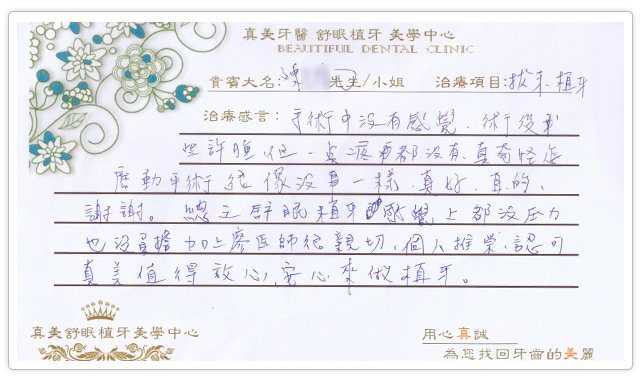 真美牙醫 舒眠植牙 美學中心
BEAUTIFUL DENTAL CLINIC
貴賓大名:陳 先生/小姐 治療項目:拔牙.植牙
治療感言:手術中沒有感覺.術後有
些許腫但一点疼痛都沒有.真奇怪.
動手術很像沒事一樣.真好.真的.
謝謝。總之舒眠植牙感覺上都沒压力
也沒負擔加上廖医師很親切.個人推崇.認可
真美值得放心,安心來做植牙。
真美舒眠植牙美學中心
用心真誠
為您找回牙齒的美麗